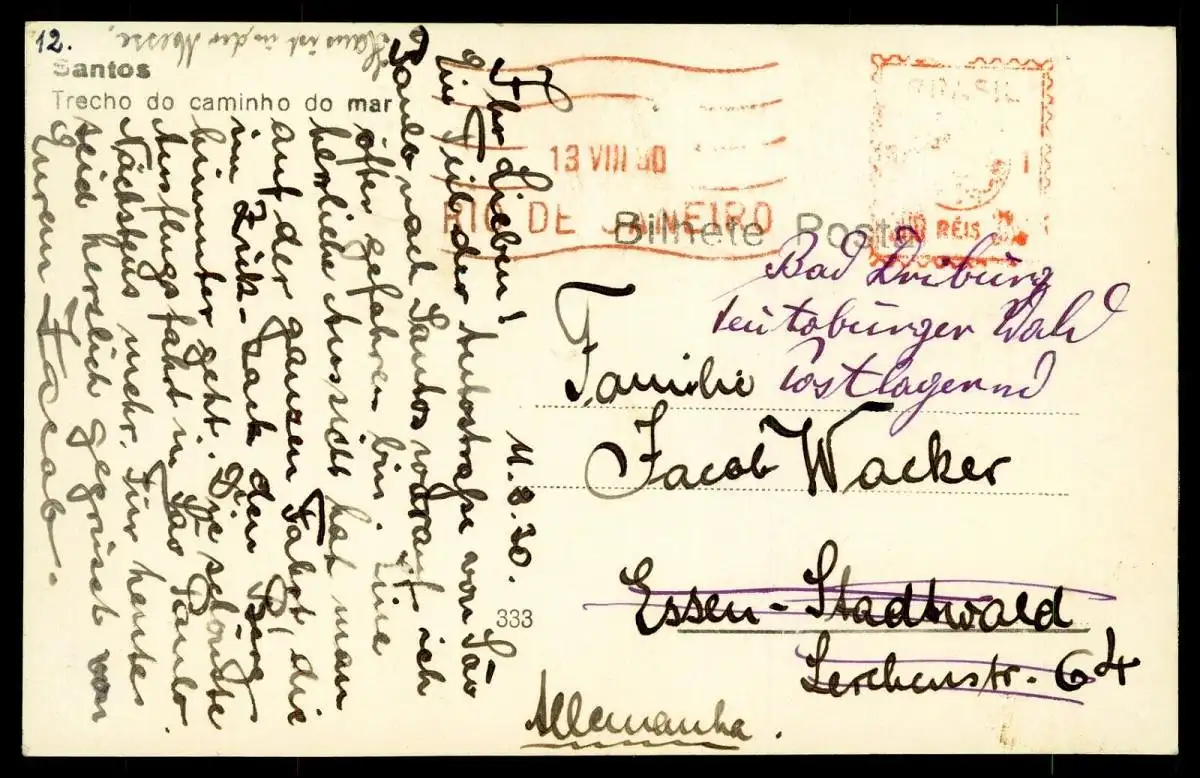 12.
Hans ist in der Messe.
Santos
Trecho do caminho do mar
11.8.30.
Ihr Lieben!
Ein Teil der Autostraße von São
Paulo nach Santos worauf ich
öfter gefahren bin. Eine
herrliche Aussicht hat man
auf der ganzen Fahrt, die
im Zick-Zack den Berg
hinunter geht. Die schönste
Ausflugsfahrt in São Paulo.
Nächstens mehr. Für heute
seid herzlich gegrüsst von
Eurem Jacob.
13 VIII 30
RIO DE JANEIRO
BRASIL
RÉIS
Bilhete Postal
Bad Driburg
Teutoburger Wald
Postlagernd
Familie
Jacob Wacker
Essen-Stadtwald
Lerchenstr. 64
Allemanha.
333